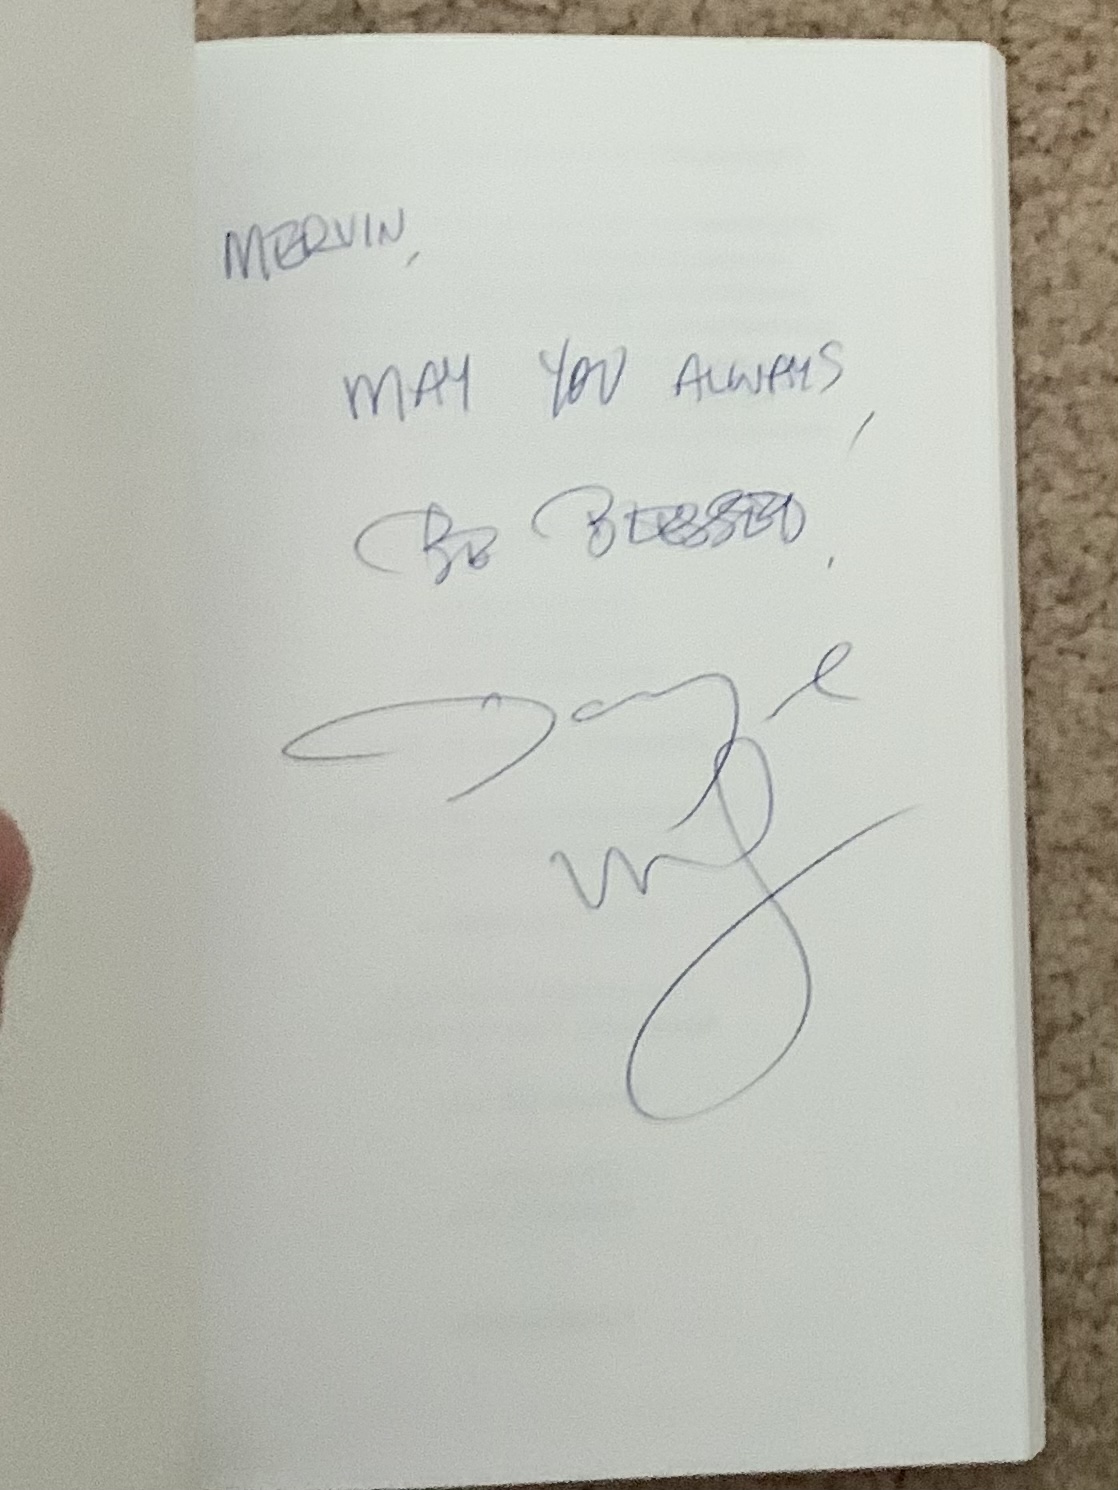 MERVIN,
MAY YOU ALWAYS,
BE BLESSED,